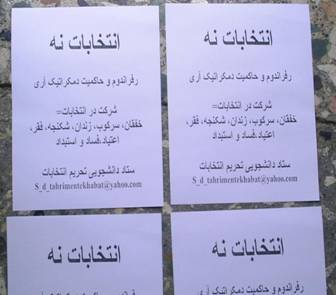 انتخابات نه
رفراندوم و حاکمیت دمکراتیک آری
شرکت در انتخابات=
خفقان، سرکوب، زندان، شکنجه، فقر،
اعتیاد،فساد و استبداد
ستاد دانشجویی تحریم انتخابات
S_d_tahrimentekhabat@yahoo.com
انتخابات نه
رفراندوم و حاکمیت دمکراتیک آری
شرکت در انتخابات=
خفقان، سرکوب، زندان، شکنجه، فقر،
اعتیاد،فساد و استبداد
ستاد دانشجویی تحریم انتخابات
S_d_tahrimentekhabat@yahoo.com
انتخابات نه
رفراندوم و حاکمیت دمکراتیک آری
انتخابات نه
رفراندوم و حاکمیت دمکراتیک آری